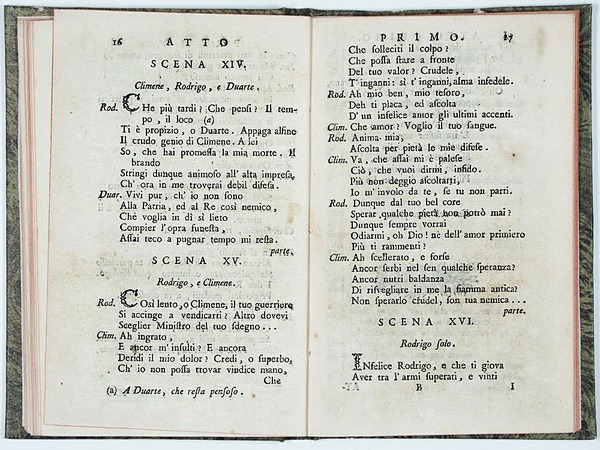 16 ATTO
SCENA XIV.
Climene, Rodrigo, e Duarte.
Rod. CHe più tardi? Che pensi? Il tem-
po, il loco (a)
Ti è propizio, o Duarte. Appaga alfine
Il crudo genio di Climene. A lei
So, che hai promessa la mia morte. Il
brando
Stringi dunque animoso all' alta impresa,
Ch' ora in me troverai debil difesa.
Duar. Vivi pur, ch' io non sono
Alla Patria, ed al Re così nemico,
Che voglia in dì sì lieto
Compier l'opra funesta,
Assai teco a pugnar tempo mi resta.
parte.
SCENA XV.
Rodrigo, e Climene.
Rod. COsì lento, o Climene, il tuo guerriero
Si accinge a vendicarti? Altro dovevi
Sceglier Ministro del tuo sdegno...
Clim. Ah ingrato,
E ancor m'insulti? E ancora
Deridi il mio dolor? Credi, o superbo,
Ch' io non possa trovar vindice mano,
Che
(a) A Duarte, che resta pensoso.
PRIMO. 17
Che solleciti il colpo?
Che possa stare a fronte
Del tuo valor? Crudele,
T' inganni: sì t' inganni, alma infedele.
Rod. Ah mio ben, mio tesoro,
Deh ti placa, ed ascolta
D' un infelice amor gli ultimi accenti.
Clim. Che amor? Voglio il tuo sangue.
Rod. Anima mia,
Ascolta per pietà le mie difese.
Clim. Va, che assai mi è palese
Ciò, che vuoi dirmi, infido.
Più non deggio ascoltarti,
Io m' involo da te, se tu non parti.
Rod. Dunque dal tuo bel core
Sperar qualche pietà non potrò mai?
Dunque sempre vorrai
Odiarmi, oh Dio! nè dell' amor primiero
Più ti rammenti?
Clim. Ah scellerato, e forse
Ancor serbi nel sen qualche speranza?
Ancor nutri baldanza
Di risvegliare in me la fiamma antica?
Non sperarlo crudel, son tua nemica...
parte.
SCENA XVI.
Rodrigo solo.
INfelice Rodrigo, e che ti giova
Aver tra l' armi superati, e vinti
B I